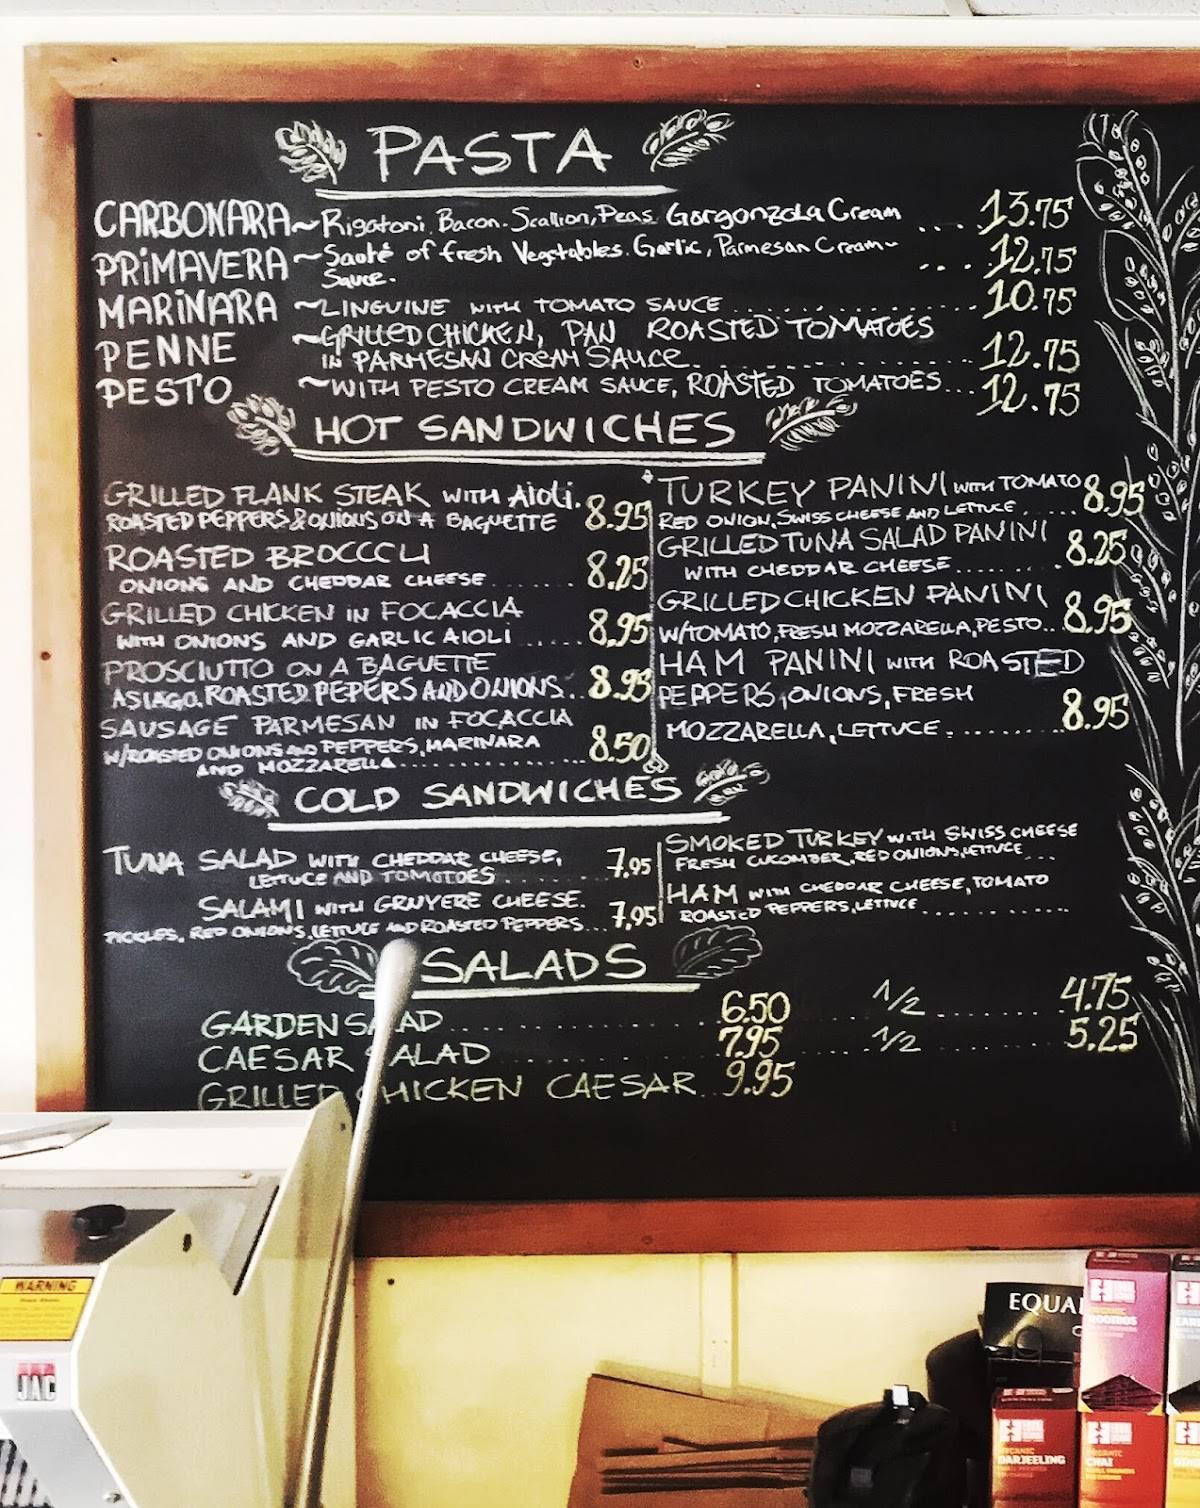 PASTA
CARBONARA ~ Rigatoni, Bacon. Scallion, Peas Gorgonzola Cream .... 13.75
PRiMAVERA ~ Sauté of fresh Vegetables. Garlic, Parmesan Cream~ .... 12.75
Sauce.
MARiNARA ~ LINGUINE WITH TOMATO SAUCE .......... 10.75
PENNE ~ GRILLED CHICKEN, PAN ROASTED TOMATOES
IN PARMESAN CREAM SAUCE .......... 12.75
PESTO ~ WITH PESTO CREAM SAUCE, ROASTED TOMATOES ... 12.75
HOT SANDWICHES
GRILLED FLANK STEAK WITH AiOLi.
ROASTED PEPPERS & ONIONS ON A BAGUETTE 8.95
ROASTED BROCCCLI
ONIONS AND CHEDDAR CHEESE ........ 8.25
GRILLED CHICKEN IN FOCACCIA
WITH ONIONS AND GARLIC AIOLI ...... 8.95
PROSCIUTTO ON A BAGUETTE
ASIAGO, ROASTED PEPERS AND ONIONS.. 8.95
SAUSAGE PARMESAN IN FOCACCIA
W/ROASTED ONIONS AND PEPPERS, MARINARA 8.50
AND MOZZARELLA ..................
TURKEY PANINI WITH TOMATO 8.95
RED ONION, SWISS CHEESE AND LETTUCE ......
GRILLED TUNA SALAD PANINI 8.25
WITH CHEDDAR CHEESE .........
GRILLED CHICKEN PANINI 8.95
W/TOMATO, FRESH MOZZARELLA, PESTO..
HAM PANINI WITH ROASTED
PEPPERS, ONIONS, FRESH
MOZZARELLA, LETTUCE .......... 8.95
COLD SANDWICHES
TUNA SALAD WITH CHEDDAR CHEESE, 7.95
LETTUCE AND TOMOTOES ........
SALAMI WITH GRUYERE CHEESE.
PICKLES, RED ONIONS, LETTUCE AND ROASTED PEPPERS... 7.95
SMOKED TURKEY WITH SWISS CHEESE
FRESH CUCOMBER, RED ONIONS, LETTUCE ...
HAM WITH CHEDDAR CHEESE, TOMATO
ROASTED PEPPERS, LETTUCE ............
SALADS
GARDEN SALAD .............. 6.50 1/2 .......... 4.75
CAESAR SALAD .............. 7.95 1/2 .......... 5.25
GRILLED CHICKEN CAESAR .. 9.95
WARNING
JAC
EQUAL
ORGANIC
ROOIBOS
ORGANIC
DARJEELING
ORGANIC
CHAI